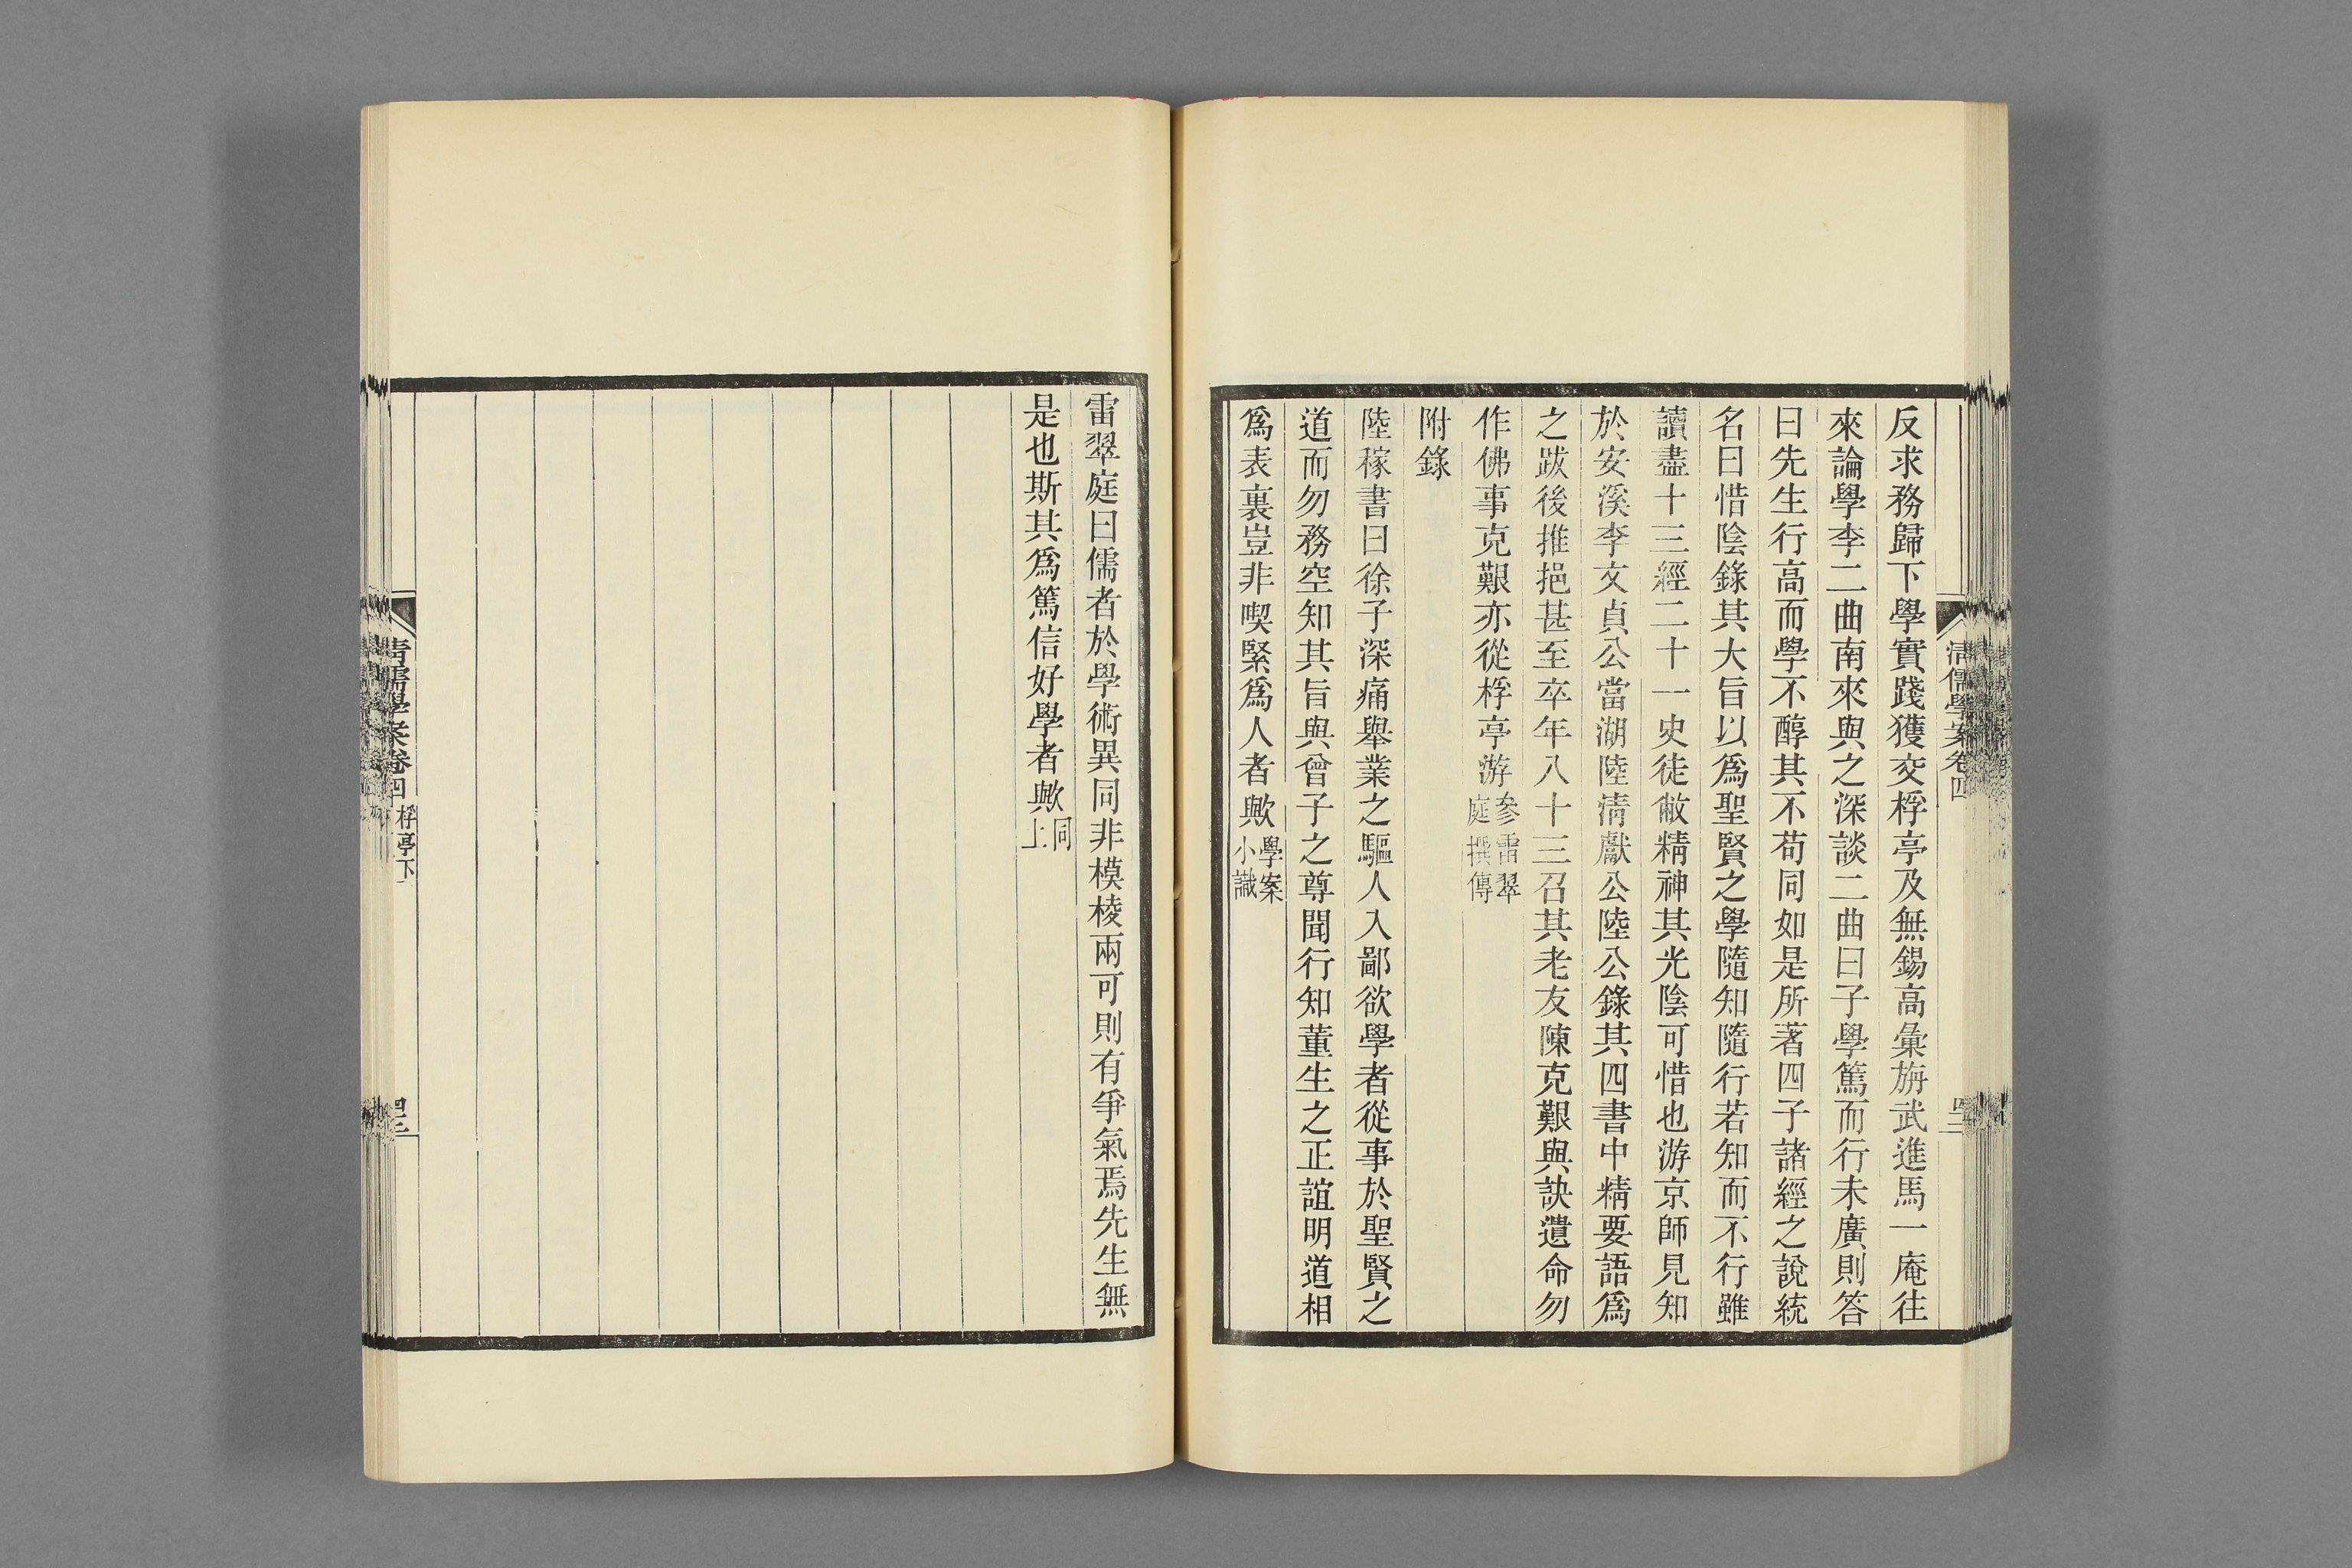 清儒學案卷四
反求務歸下學實踐獲交桴亭及無錫高彙旃武進馬一庵往
來論學李二曲南來與之深談二曲曰子學篤而行未廣則答
曰先生行高而學不醇其不苟同如是所著四子諸經之說統
名曰惜陰錄其大旨以爲聖賢之學隨知隨行若知而不行雖
讀盡十三經二十一史徒敝精神其光陰可惜也游京師見知
於安溪李文貞公當湖陸清獻公陸公錄其四書中精要語爲
之跋後推挹甚至卒年八十三召其老友陳克艱與訣遺命勿
作佛事克艱亦從桴亭游參雷翠庭撰傳
附錄
陸稼書曰徐子深痛舉業之驅人入鄙欲學者從事於聖賢之
道而勿務空知其旨與曾子之尊聞行知董生之正誼明道相
爲表裏豈非喫緊爲人者歟學案小識
雷翠庭曰儒者於學術異同非模棱兩可則有爭氣焉先生無
是也斯其爲篤信好學者歟同上
清儒學案卷四 桴亭下